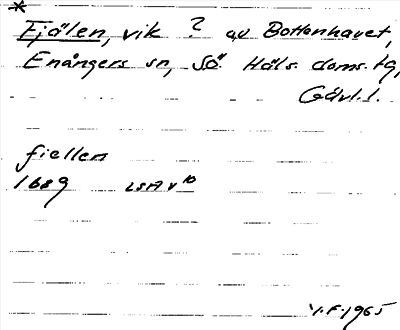 *
Fjälen, vik ? av Bottenhavet,
Enångers sn, Sö Häls. doms. tg,
Gävl. l.
fiellen
1689 LSA v 10
V.F. 1965